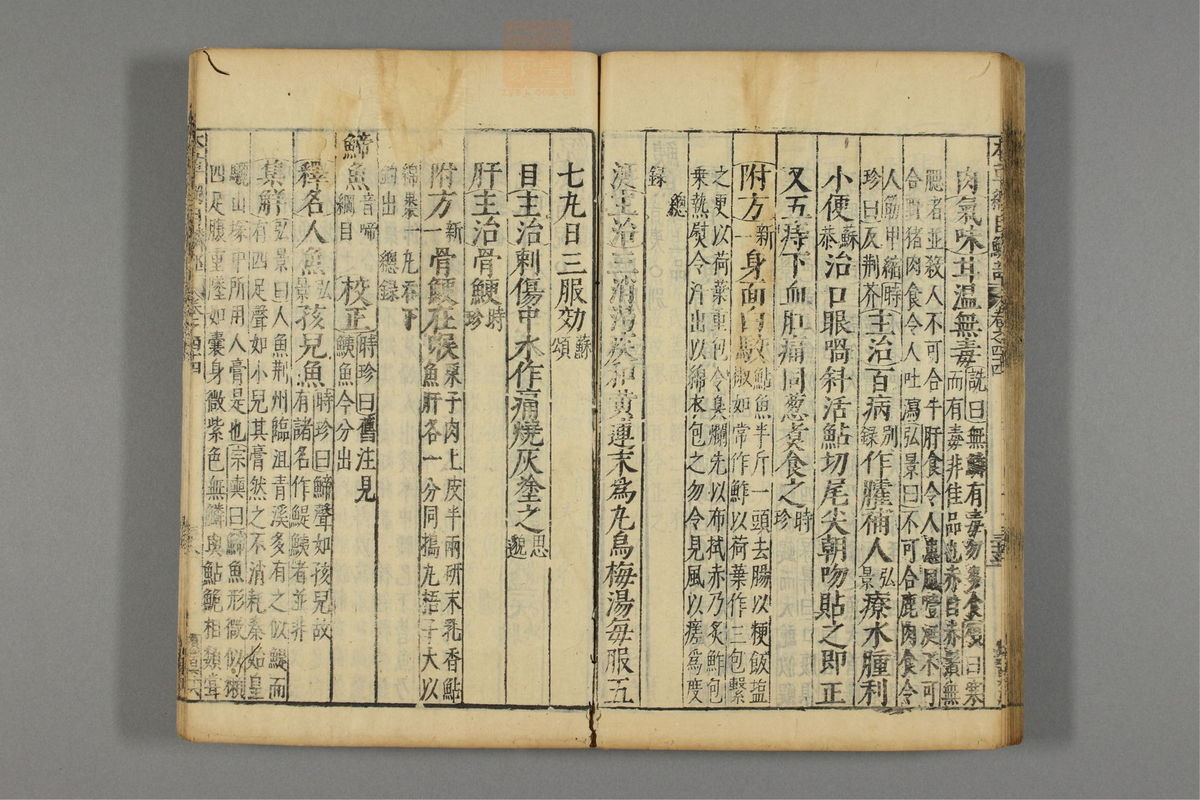 肉氣味甘溫無毒詵曰無鱗有毒勿多食頌曰寒
而有毒非佳品也赤目赤鬚無
腮者並殺人不可合牛肝食令人患風噎涎不可
合野猪肉食令人吐瀉弘景曰不可合鹿肉食令
人筋甲縮時
珍曰反荆芥主治百病別
錄作臛補人弘
景療水腫利
小便蘇
恭治口眼喎斜活鮎切尾尖朝吻貼之即正
又五痔下血肛痛同葱煮食之時
珍
附方新
一身面白駁鮎魚半斤一頭去腸以粳飯鹽
椒如常作鮓以荷葉作三包繫
之更以荷葉重包令臭爛先以布拭赤乃炙鮓包
乗熱熨令汗出以綿衣包之勿令見風以瘥為度
總
錄
涎主治三消渴疾和黄連末為丸烏梅湯每服五
七丸日三服効蘇
頌
目主治刺傷中水作痛燒灰塗之思
邈
肝主治骨鯁時
珍
附方新
一骨鯁在喉栗子肉上皮半兩研末乳香鮎
魚肝各一分同搗丸梧子大以
綿裹一丸吞下
釣出 總錄
䱱魚音啼
綱目 校正時珍曰舊注見
鮧魚今分出
釋名人魚弘
景孩兒魚時珍曰䱱聲如孩兒故
有諸名作鯷鮧者並非
集解弘景曰人魚荆州臨沮青溪多有之似鯷而
有四足聲如小兒其膏然之不消耗秦始皇
驪山塚中所用人膏是也宗奭曰䱱魚形微似獺
四足腹重墜如囊身微紫色無鱗與鮎鮠相類嘗